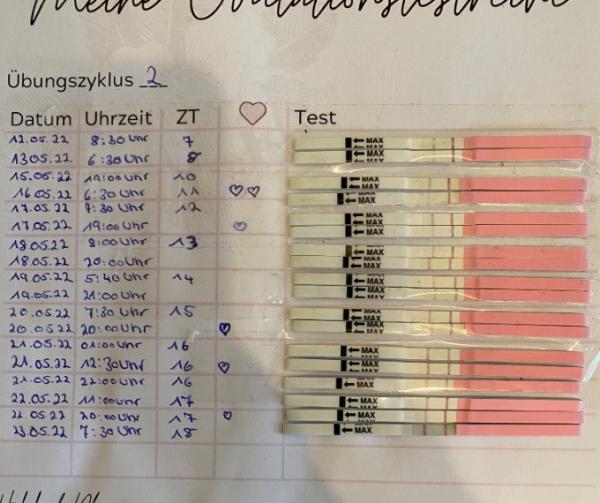 Meine Ovulationstestreihe
Übungszyklus 2
Datum Uhrzeit ZT Test
12.05.22 8:30 Uhr 7 MAX
13.05.22 6:30 Uhr 8 MAX
15.05.22 11:00 Uhr 10 MAX
16.05.22 6:30 Uhr 11 MAX
17.05.22 7:30 Uhr 12 MAX
17.05.22 19:00 Uhr MAX
18.05.22 8:00 Uhr 13 MAX
18.05.22 20:00 Uhr MAX
19.05.22 5:40 Uhr 14 MAX
19.05.22 21:00 Uhr MAX
20.05.22 7:30 Uhr 15 MAX
20.05.22 20:00 Uhr MAX
21.05.22 01:00 Uhr 16 MAX
21.05.22 12:30 Uhr 16 MAX
21.05.22 22:00 Uhr 16 MAX
22.05.22 11:00 Uhr 17 MAX
22.05.22 20:00 Uhr 17 MAX
23.05.22 7:30 Uhr 18 MAX